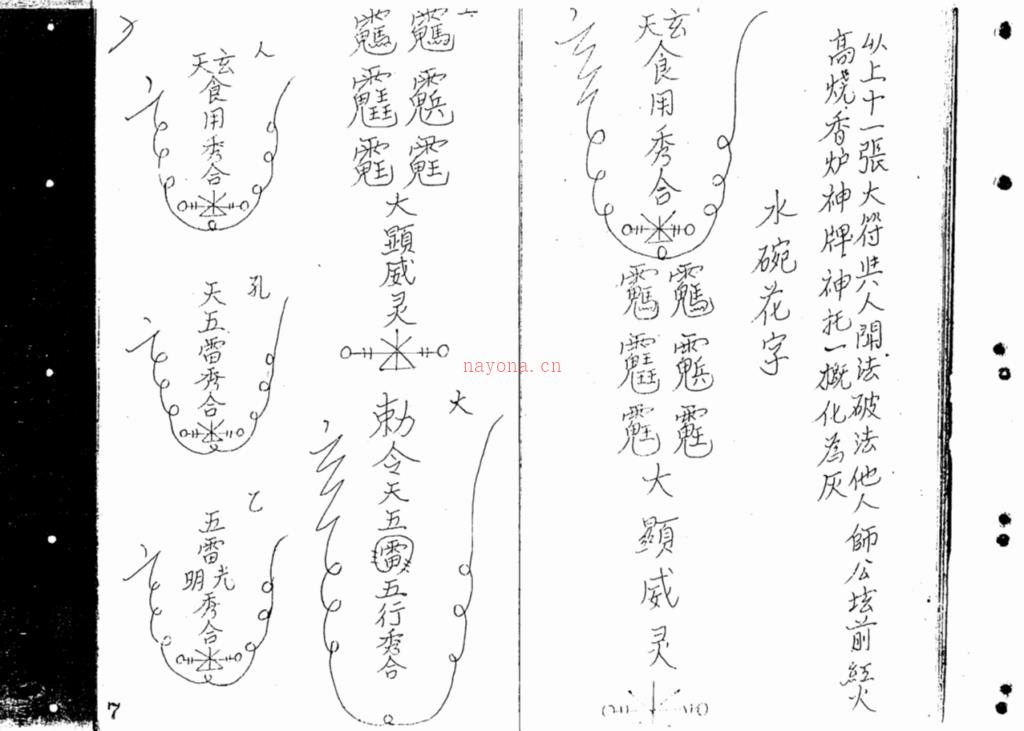 以上十一張大符共人開法破法他人師公坛前紅火
高燒香炉神牌神托一概化為灰
水碗花字
玄天食用秀合
大顯威灵
大顯威灵
大
勅令天五雷五行秀合
人
玄天食用秀合
孔
天五雷秀合
乙
五雷光明秀合
7
nayona.cn